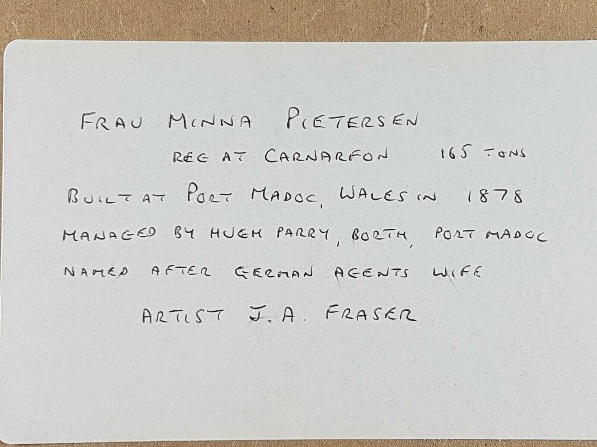 FRAU MINNA PIETERSEN
REG AT CARNARFON 165 TONS
BUILT AT PORT MADOC, WALES IN 1878
MANAGED BY HUGH PARRY, BORTH, PORT MADOC
NAMED AFTER GERMAN AGENTS WIFE
ARTIST J. A. FRASER